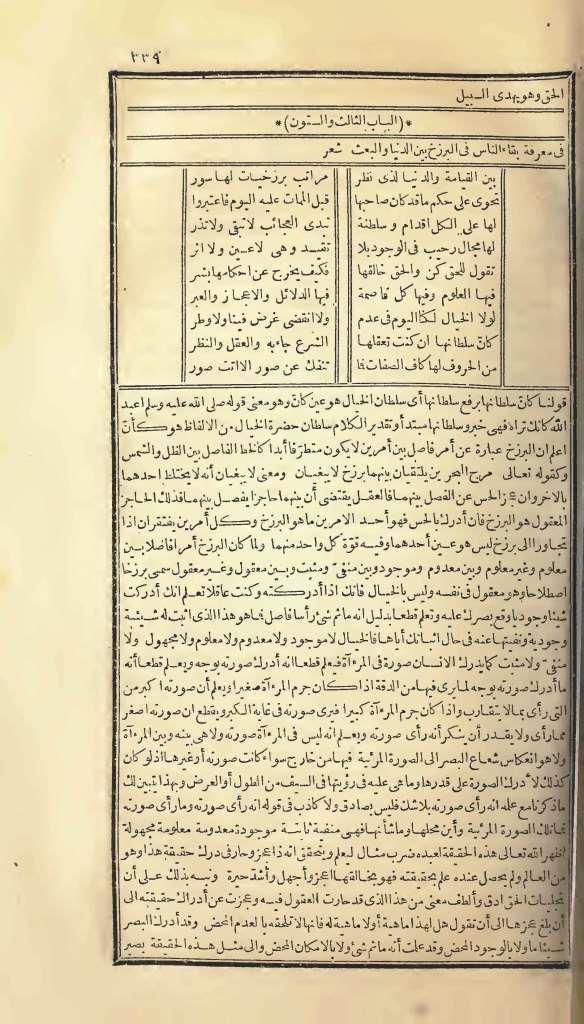 ٣٣٩
الحق وهو يهدى السبيل
*(الباب الثالث والستون)*
فى معرفة بقاء الناس فى البرزخ بين الدنيا والبعث شعر
بين القيامة والدنيا لذى نظر مراتب برزخيات لها سور
تحوى على حكم ما قد كان صاحبها قبل الممات عليه اليوم فاعتبروا
لها على الكل اقدام وسلطنة تبدى العجائب لا تبقى ولا تذر
لها مجال رحيب فى الوجود بلا تقيد وهى لا عين ولا اثر
تقول للحق كن والحق خالقها فكيف يخرج عن احكامها بشر
فيها العلوم وفيها كل قاصمة فيها الدلائل والاعجاز والعبر
لولا الخيال لكنا اليوم فى عدم ولا انقضى غرض فينا ولا وطر
كان سلطانها ان كنت تعقلها الشرع جاء به والعقل والنظر
من الحروف لها كاف الصفات فما تنفك عن صور الا اتت صور
قولنا كان سلطانها برفع سلطانها أى سلطان الخيال هو عين كان وهو معنى قوله صلى الله عليه وسلم اعبد
الله كانك تراه فهى خبر وسلطانها مبتدأ وتقدير الكلام سلطان حضرة الخيال من الالفاظ هو كأن
اعلم ان البرزخ عبارة عن أمر فاصل بين أمرين لا يكون متطرفا أبدا كالخط الفاصل بين الظل والشمس
وكقوله تعالى مرج البحرين يلتقيان بينهما برزخ لا يبغيان ومعنى لا يبغيان أنه لا يختلط احدهما
بالاخر وان عجز الحس عن الفصل بينهما فالعقل يقتضى أن بينهما حاجزا يفصل بينهما فذلك الحاجز
المعقول هو البرزخ فان أدرك بالحس فهو أحد الامرين ما هو البرزخ وكل أمرين يفتقران اذا
تجاورا الى برزخ ليس هو عين أحدهما وفيه قوة كل واحد منهما ولما كان البرزخ أمرا فاصلا بين
معلوم وغير معلوم وبين معدوم وموجود وبين منفى ومثبت وبين معقول وغير معقول سمى برزخا
اصطلاحا وهو معقول فى نفسه وليس بالخيال فانك اذا أدركته وكنت عاقلا تعلم انك أدركت
شيئا وجوديا وقع بصرك عليه وتعلم قطعا بدليل انه ما ثم شئ رأسا فاصل فما هو هذا الذى اثبت له شيئية
وجودية ونفيتها عنه فى حال اثباتك أياها فالخيال لا موجود ولا معدوم ولا معلوم ولا مجهول ولا
منفى ولا مثبت كما يدرك الانسان صورة فى المرآة فيعلم قطعا انه أدرك صورته بوجه ويعلم قطعا أنه
ما أدرك صورته بوجه لما يرى فيها من الدقة اذا كان جرم المرآة صغيرا ويعلم أن صورته اكبر من
التى رأى بما لا يتقارب واذا كان جرم المرآة كبيرا فيرى صورته فى غاية الكبر ويقطع ان صورته اصغر
مما رأى ولا يقدر أن ينكر أنه رأى صورته ويعلم انه ليس فى المرآة صورته ولا هى بينه وبين المرآة
ولا هو انعكاس شعاع البصر الى الصورة المرئية فيها من خارج سواء كانت صورته أو غيرها اذ لو كان
كذلك لأدرك الصورة على قدرها وما هى عليه فى رؤيتها فى السيف من الطول أو العرض وبهذا يتبين لك
ما ذكرنا مع علمه انه رأى صورته بلا شك فليس بصادق ولا كاذب فى قوله انه رأى صورته وما رأى صورته
فما تلك الصورة المرئية وأين محلها وما شأنها فهى منفصة ثابتة موجودة معدومة معلومة مجهولة
اظهر الله تعالى هذه الحقيقة لعبده ضرب مثال ليعلم ويتحقق انه اذا عجز وحار فى درك حقيقة هذا وهو
من العالم ولم يحصل عنده علم بحقيقته فهو بخالقها اعجز وأجهل وأشد حيرة ونبه بذلك على أن
تجليات الحق ادق وألطف معنى من هذا الذى قد حارت العقول فيه وعجزت عن أدراك حقيقته الى
أن بلغ عجزها الى أن تقول هل لهذا ماهية أو لا ماهية له فانها لا تلحقه بالعدم المحض وقد أدرك البصر
شيئا ما ولا بالوجود المحض وقد علمت أنه ما ثم شئ ولا بالامكان المحض والى مثل هذه الحقيقة يصير